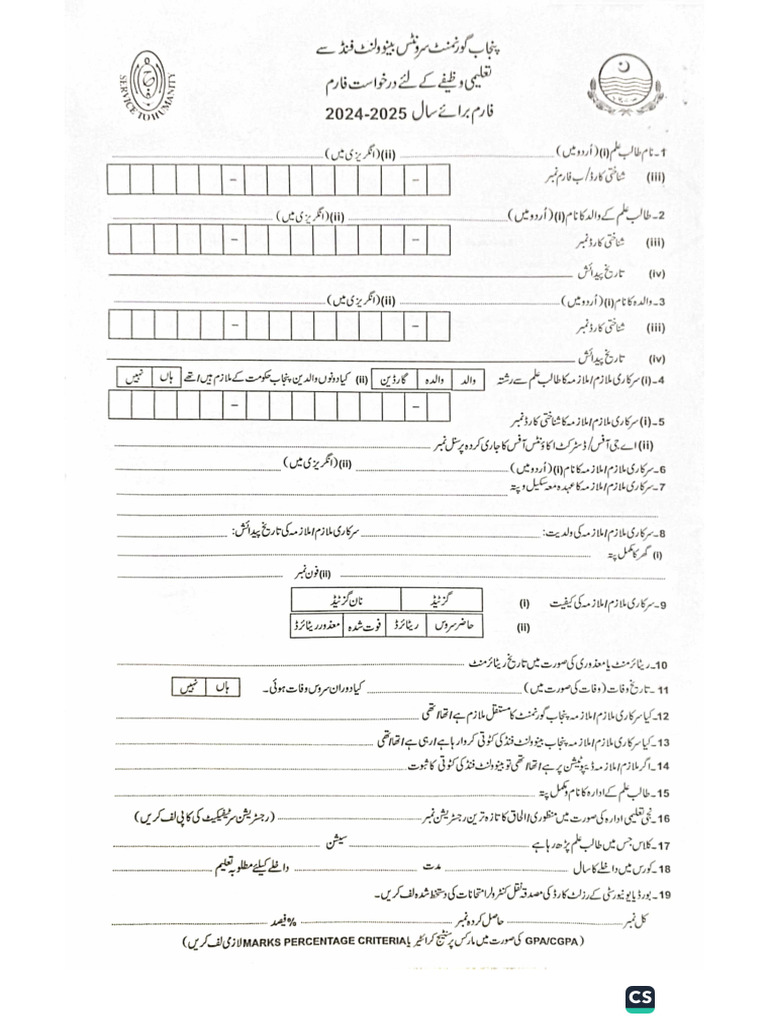 پنجاب گورنمنٹ سرونٹس بینوولنٹ فنڈ سے
تعلیمی وظیفے کے لئے درخواست فارم
فارم برائے سال 2024-2025
SERVICE TO HUMANITY
1۔ نام طالب علم (i) (اُردو میں) (ii) (انگریزی میں)
(iii) شناختی کارڈ/ب فارم نمبر
2۔ طالب علم کے والد کا نام (i) (اُردو میں) (ii) (انگریزی میں)
(iii) شناختی کارڈ نمبر
(iv) تاریخ پیدائش
3۔ والدہ کا نام (i) (اُردو میں) (ii) (انگریزی میں)
(iii) شناختی کارڈ نمبر
(iv) تاریخ پیدائش
4۔ (i) سرکاری ملازم/ملازمہ کا طالب علم سے رشتہ والد والدہ گارڈین (ii) کیا دونوں والدین پنجاب حکومت کے ملازم ہیں/تھے ہاں نہیں
5۔ (i) سرکاری ملازم/ملازمہ کا شناختی کارڈ نمبر
(ii) اے جی آفس/ڈسٹرکٹ اکاؤنٹس آفس کا جاری کردہ پرسنل نمبر
6۔ سرکاری ملازم/ملازمہ کا نام (i) (اُردو میں) (ii) (انگریزی میں)
7۔ سرکاری ملازم/ملازمہ کا عہدہ معہ سکیل و پتہ
8۔ سرکاری ملازم/ملازمہ کی ولدیت: سرکاری ملازم/ملازمہ کی تاریخ پیدائش:
(i) گھر کا مکمل پتہ
(ii) فون نمبر
9۔ سرکاری ملازم/ملازمہ کی کیفیت (i) گزٹیڈ نان گزٹیڈ
(ii) حاضر سروس ریٹائرڈ فوت شدہ معذور ریٹائرڈ
10۔ ریٹائرمنٹ یا معذوری کی صورت میں تاریخ ریٹائرمنٹ
11۔ تاریخ وفات (وفات کی صورت میں) کیا دوران سروس وفات ہوئی۔ ہاں نہیں
12۔ کیا سرکاری ملازم/ملازمہ پنجاب گورنمنٹ کا مستقل ملازم ہے/تھا/تھی
13۔ کیا سرکاری ملازم/ملازمہ پنجاب بینوولنٹ فنڈ کی کٹوتی کروا رہا ہے/رہی ہے/تھا/تھی
14۔ اگر ملازم/ملازمہ ڈیپوٹیشن پر ہے/تھا/تھی تو بینوولنٹ فنڈ کی کٹوتی کا ثبوت
15۔ طالب علم کے ادارہ کا نام و مکمل پتہ
16۔ نجی تعلیمی ادارہ کی صورت میں منظوری/الحاق کا تازہ ترین رجسٹریشن نمبر (رجسٹریشن سرٹیفکیٹ کی کاپی لف کریں)
17۔ کلاس جس میں طالب علم پڑھ رہا ہے سیشن
18۔ کورس میں داخلے کا سال مدت داخلے کیلئے مطلوبہ تعلیم
19۔ بورڈ یا یونیورسٹی کے رزلٹ کارڈ کی مصدقہ نقل کنٹرولر امتحانات کی دستخط شدہ لف کریں۔
کل نمبر حاصل کردہ نمبر %فیصد
(GPA/CGPA کی صورت میں مارکس پرسنٹیج کرائٹیریا MARKS PERCENTAGE CRITERIA لازمی لف کریں)
CS